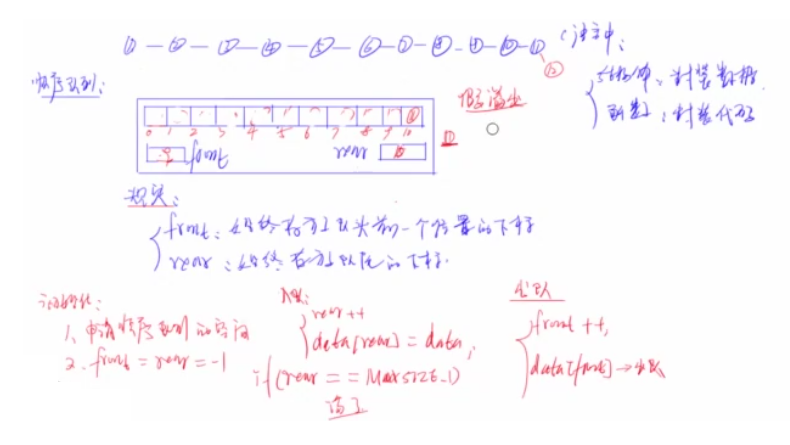 ①—②—③—④—⑤—⑥—⑦—⑧—⑨—⑩—⑪
⑫
C语言中:
结构体:封装数据
函数:封装代码
顺序队列:
假溢出
0 1 2 3 4 5 6 7 8 9 10
front
rear 10
规定:
front:始终存放队头前一个位置的下标
rear:始终存放队尾的下标
初始化:
1、申请顺序队列的空间
2、front = rear = -1
入队:
rear ++
data[rear] = data;
if(rear == Maxsize-1)
满了
出队
front ++,
data[front]→出队